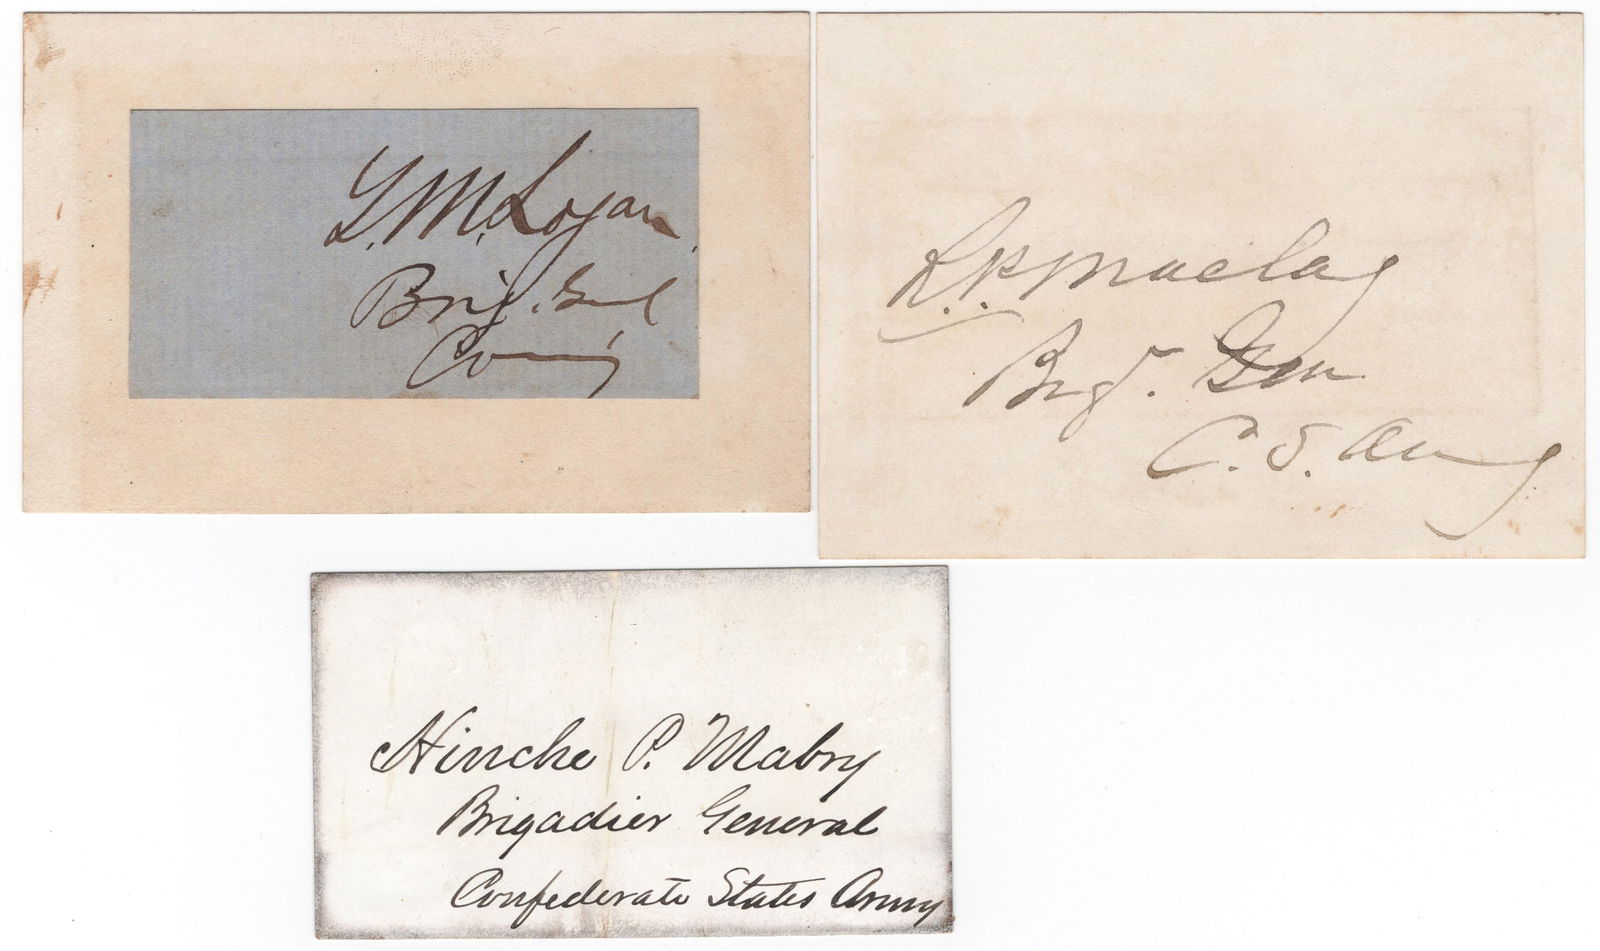 T. M. Logan.
Brig. Genl
Comg
R. P. Maclay
Brig. Gen
C. S. Army
Hinche P. Mabry
Brigadier General
Confederate States Army